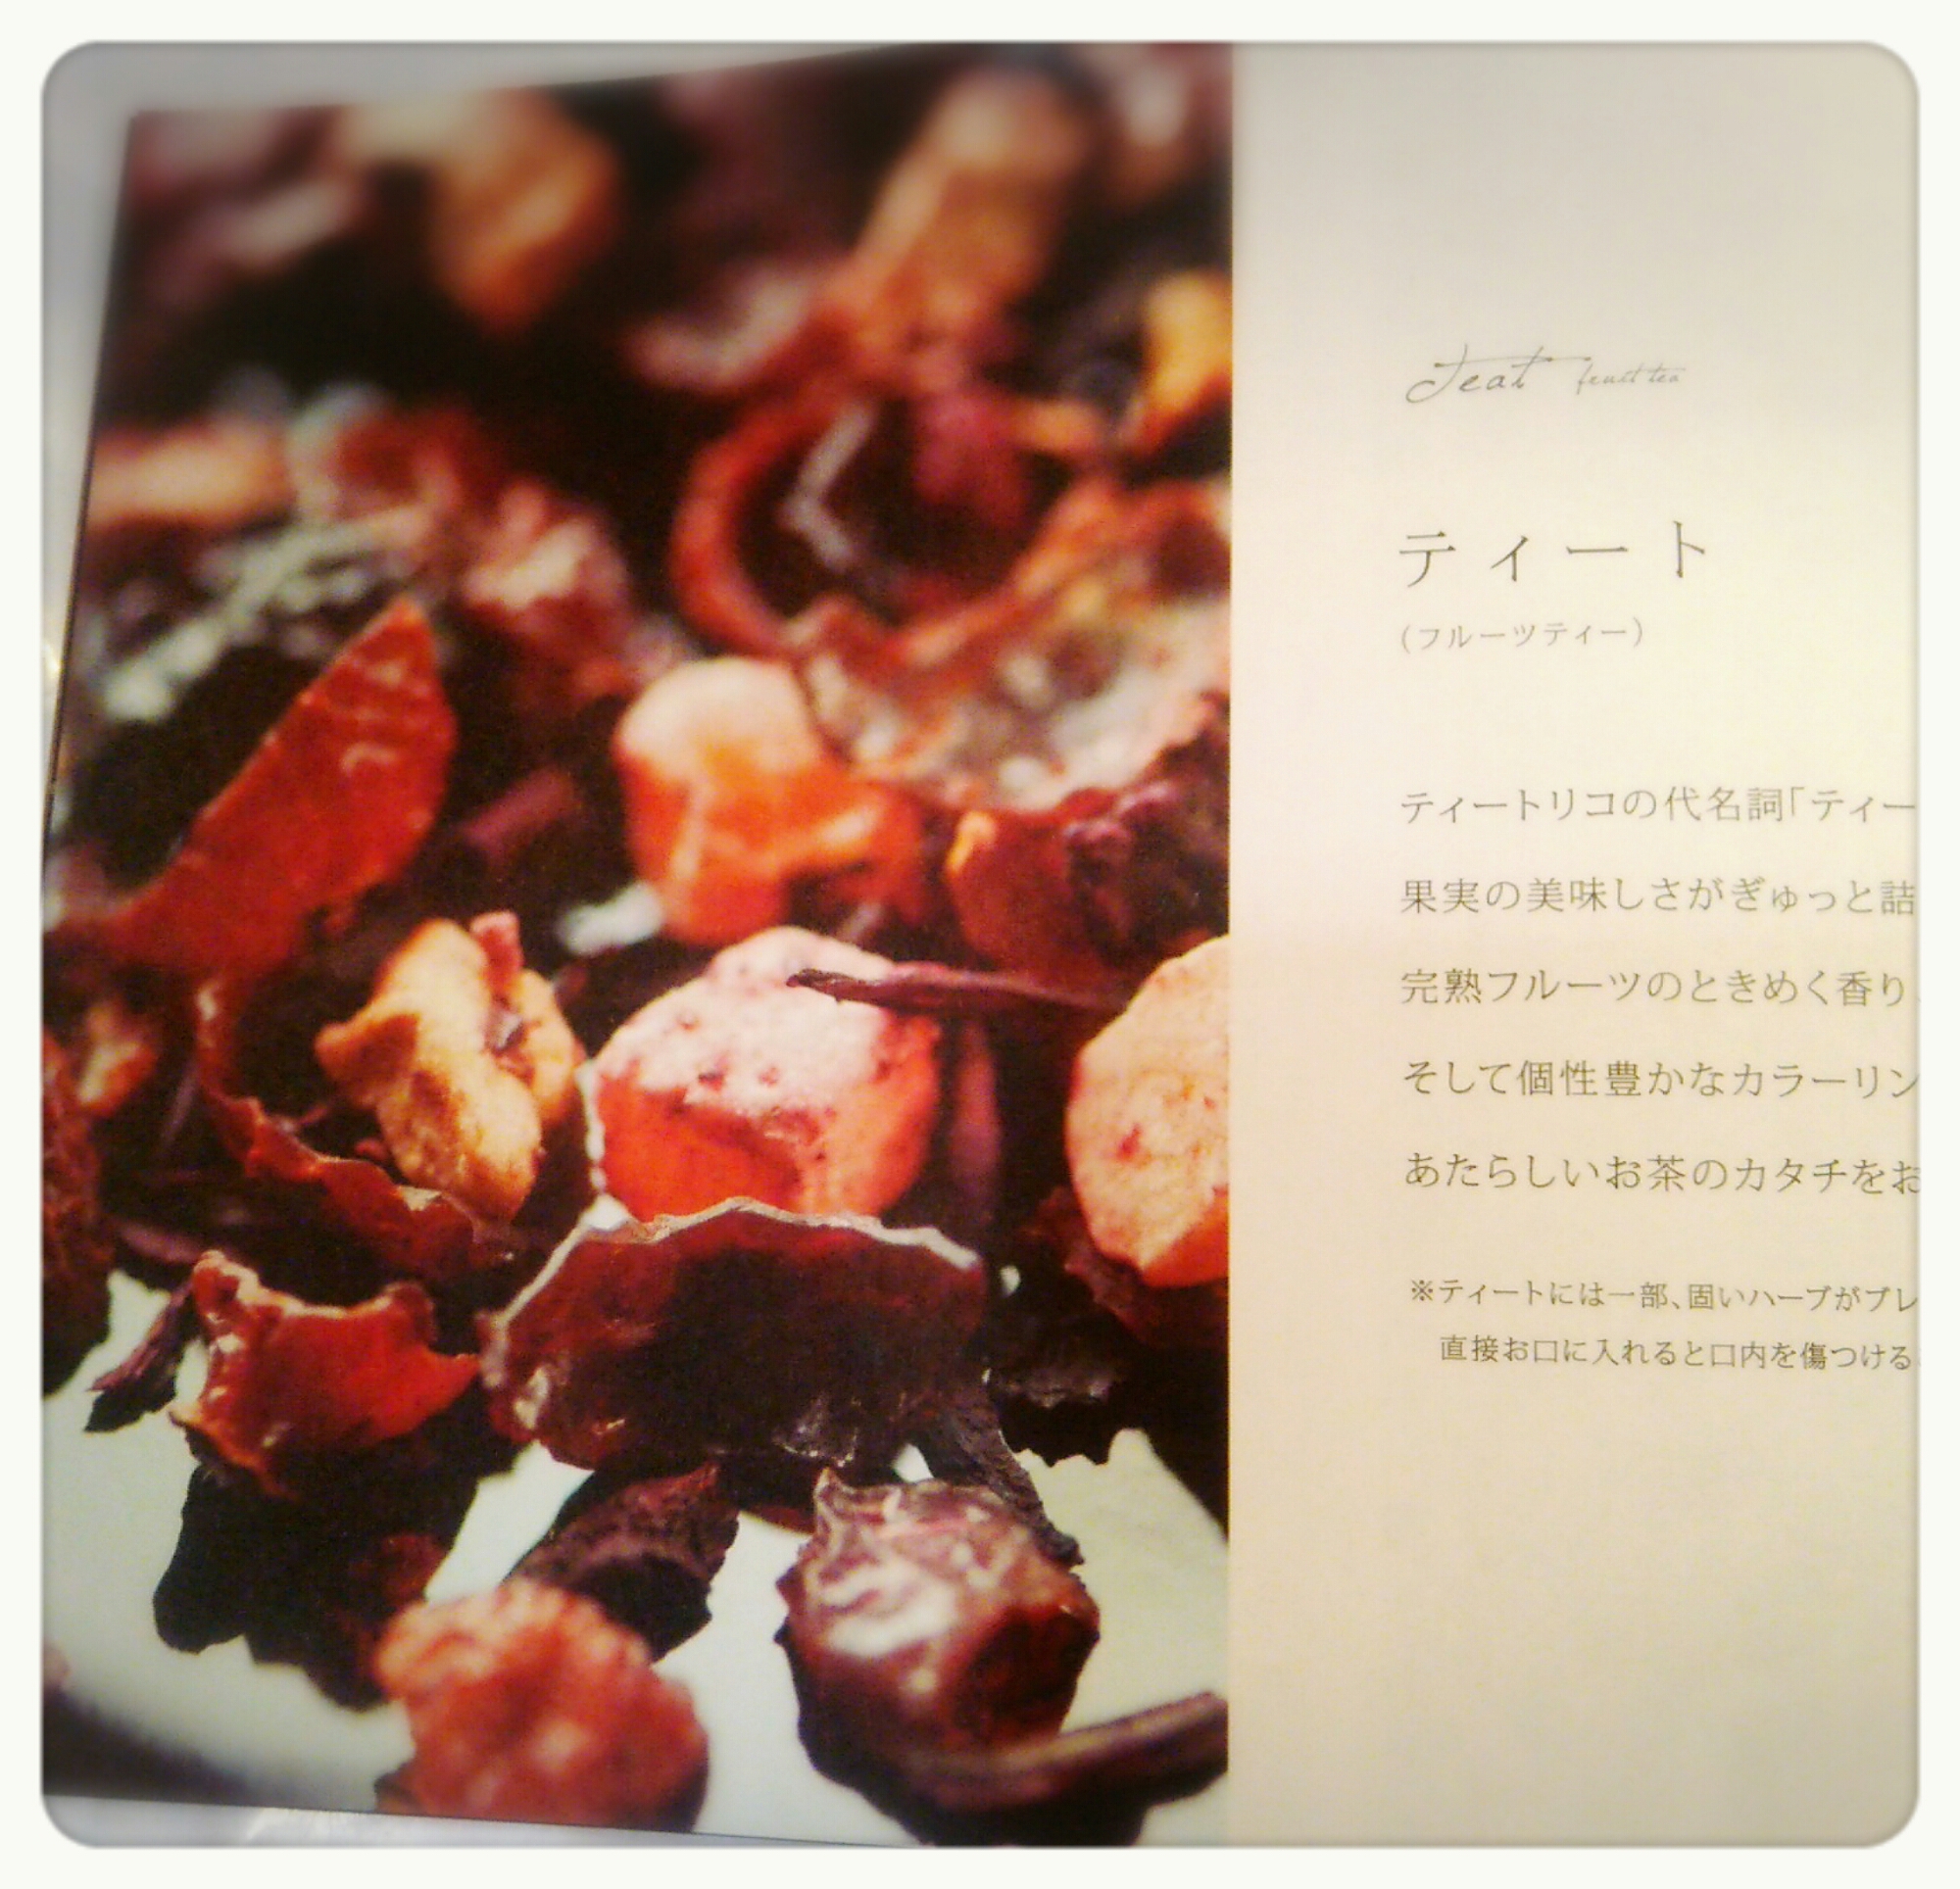 Teat fruit tea
ティート
(フルーツティー)
ティートリコの代名詞「ティー
果実の美味しさがぎゅっと詰
完熟フルーツのときめく香り
そして個性豊かなカラーリン
あたらしいお茶のカタチをお
※ティートには一部、固いハーブがブレ
直接お口に入れると口内を傷つける